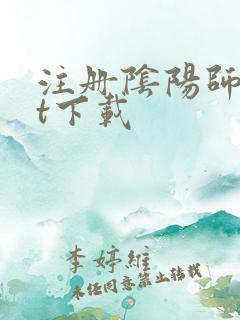 注册陰陽師
t下載
李婷維
未經同意禁止轉載